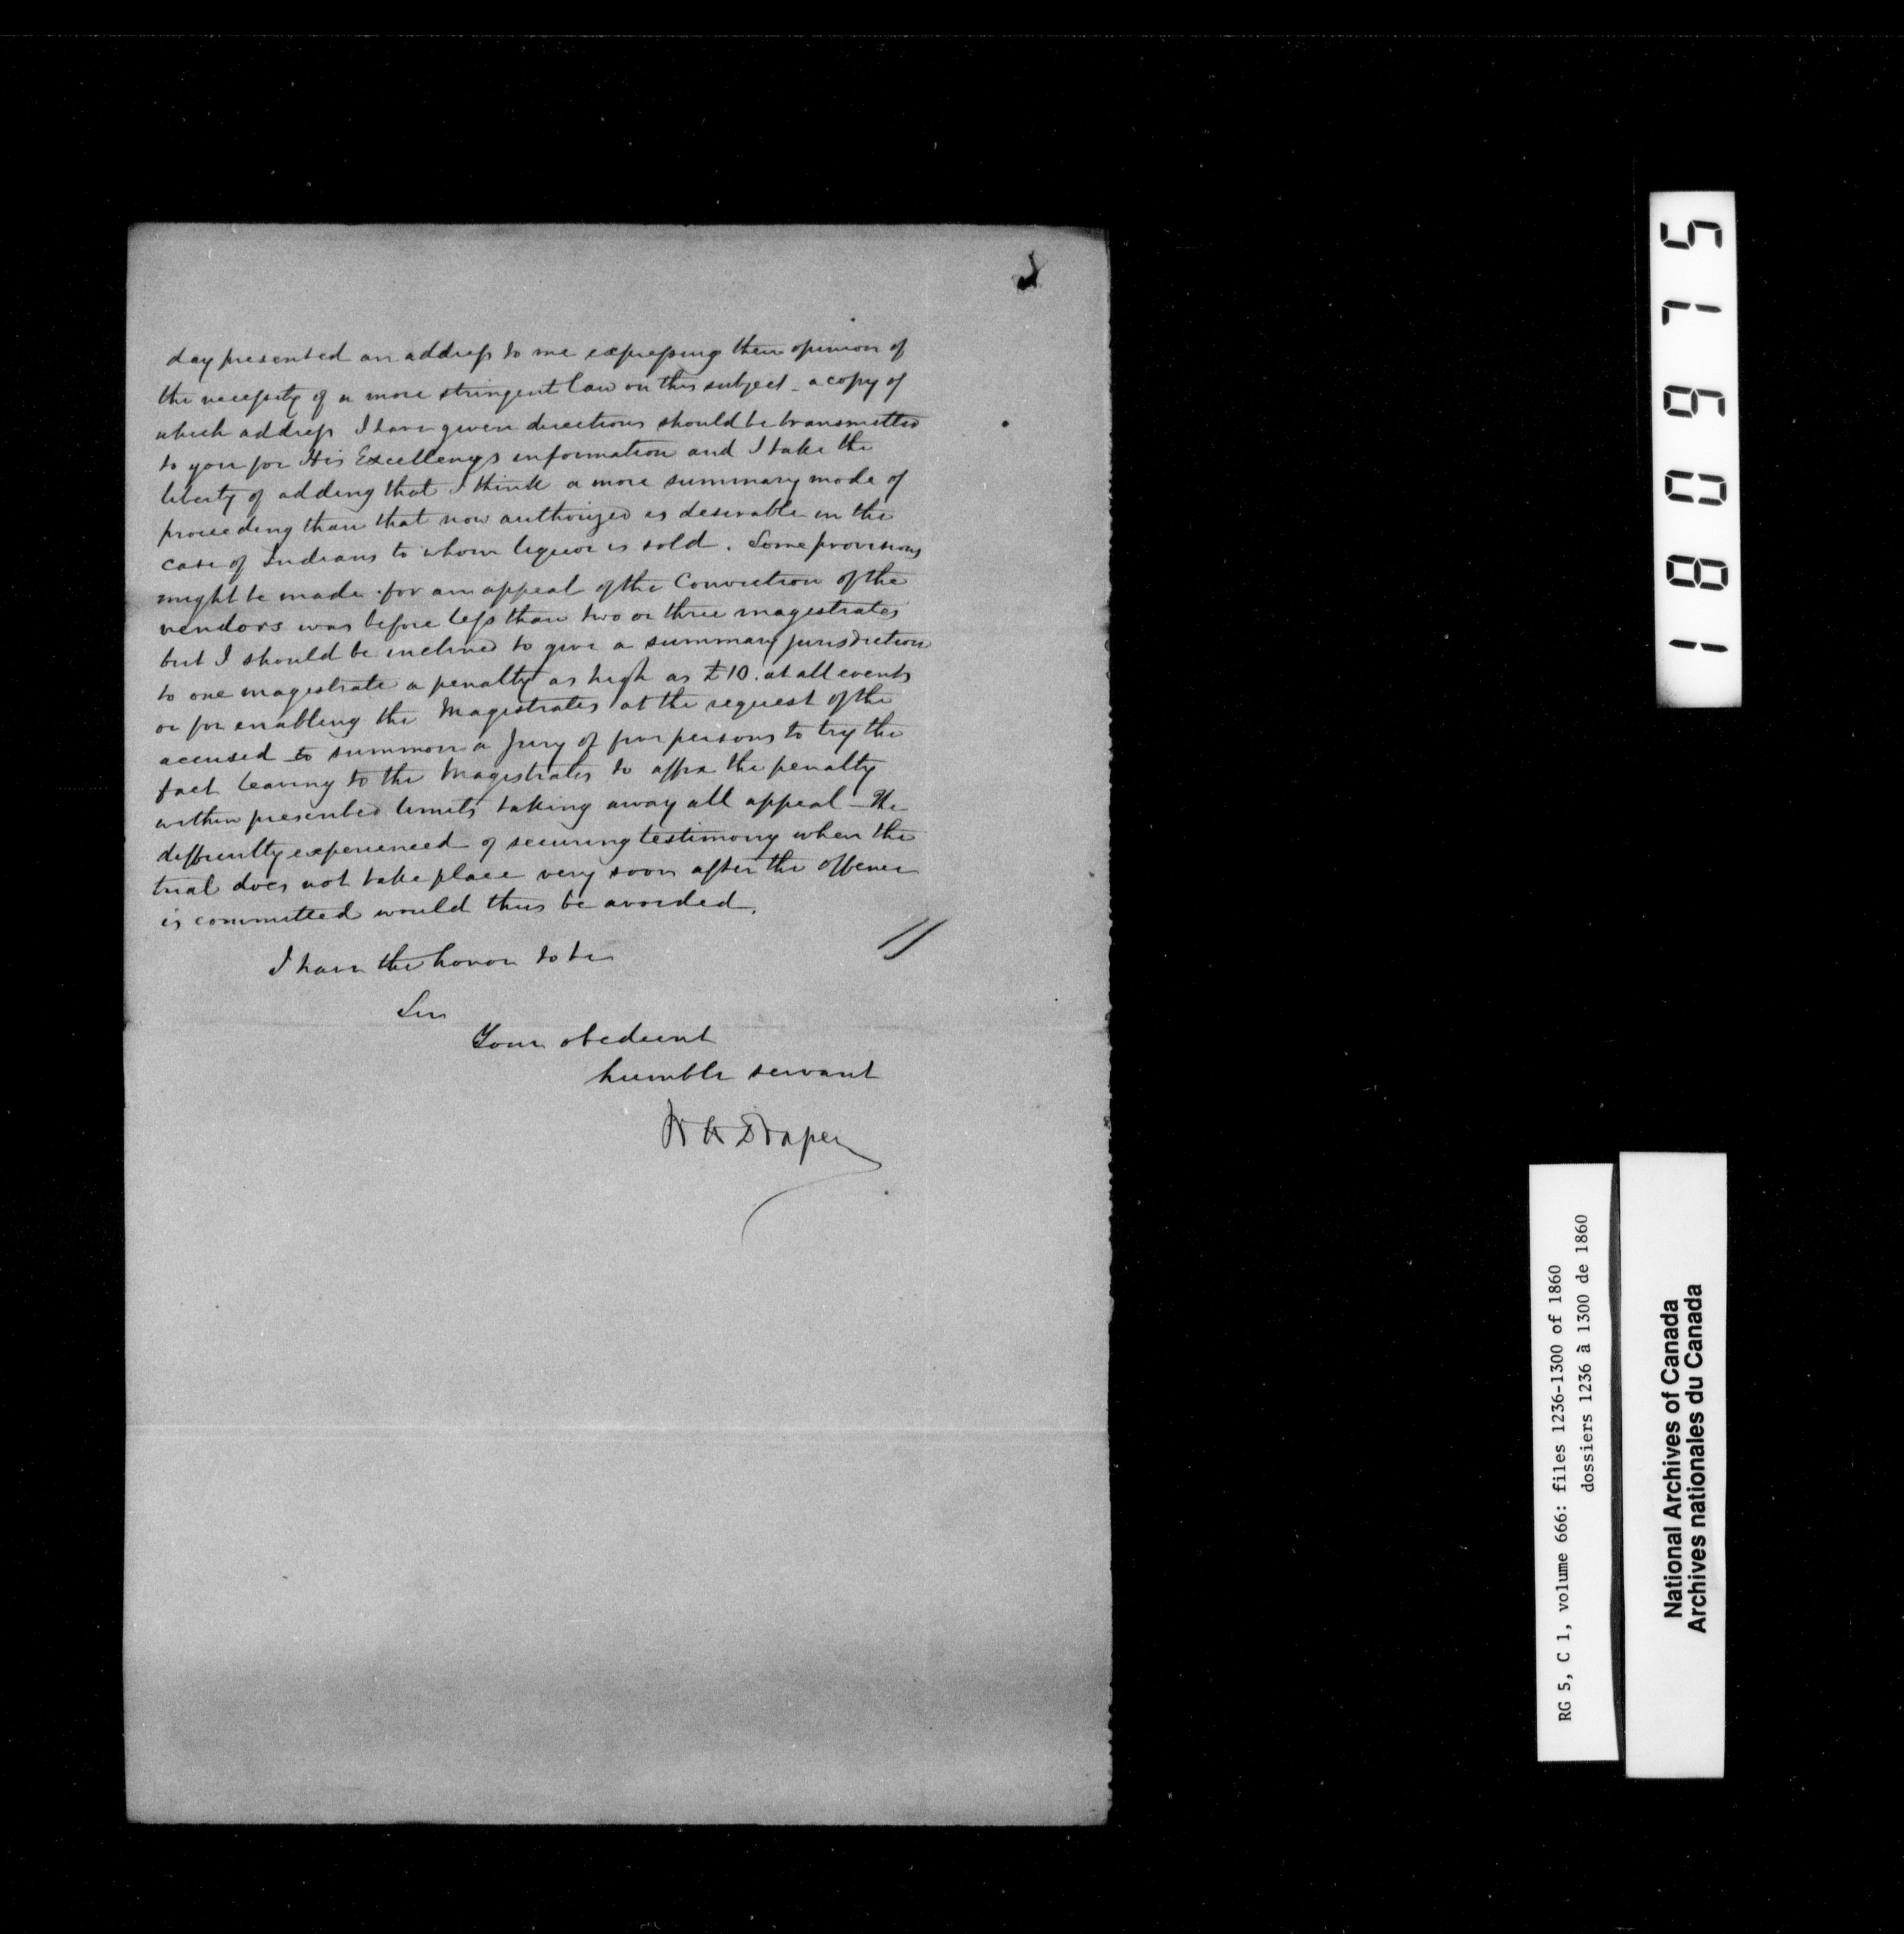 2
day presented an address to me expressing their opinion of
the necessity of a more stringent law on this subject _ a copy of
which address I have given directions should be transmitted
to you for His Excellencys information and I take the
liberty of adding that I think a more summary mode of
proceeding than that now authorized is desirable in the
case of Indians to whom liquor is sold. Some provisions
might be made for an appeal if the Conviction of the
vendors was before less than two or three magistrates
but I should be inclined to give a summary jurisdiction
to one magistrate a penalty as high as £10. at all events
or for enabling the Magistrates at the request of the
accused to summon a Jury of five persons to try the
fact leaving to the Magistrates to affix the penalty
within prescribed limits taking away all appeal _ The
difficulty experienced of securing testimony when the
trial does not take place very soon after the offence
is committed would thus be avoided.
I have the honor to be
Sir
Your obedient
humble servant
Draper
180915
RG 5, C 1, volume 666: files 1236-1300 of 1860
dossiers 1236 à 1300 de 1860
National Archives of Canada
Archives nationales du Canada